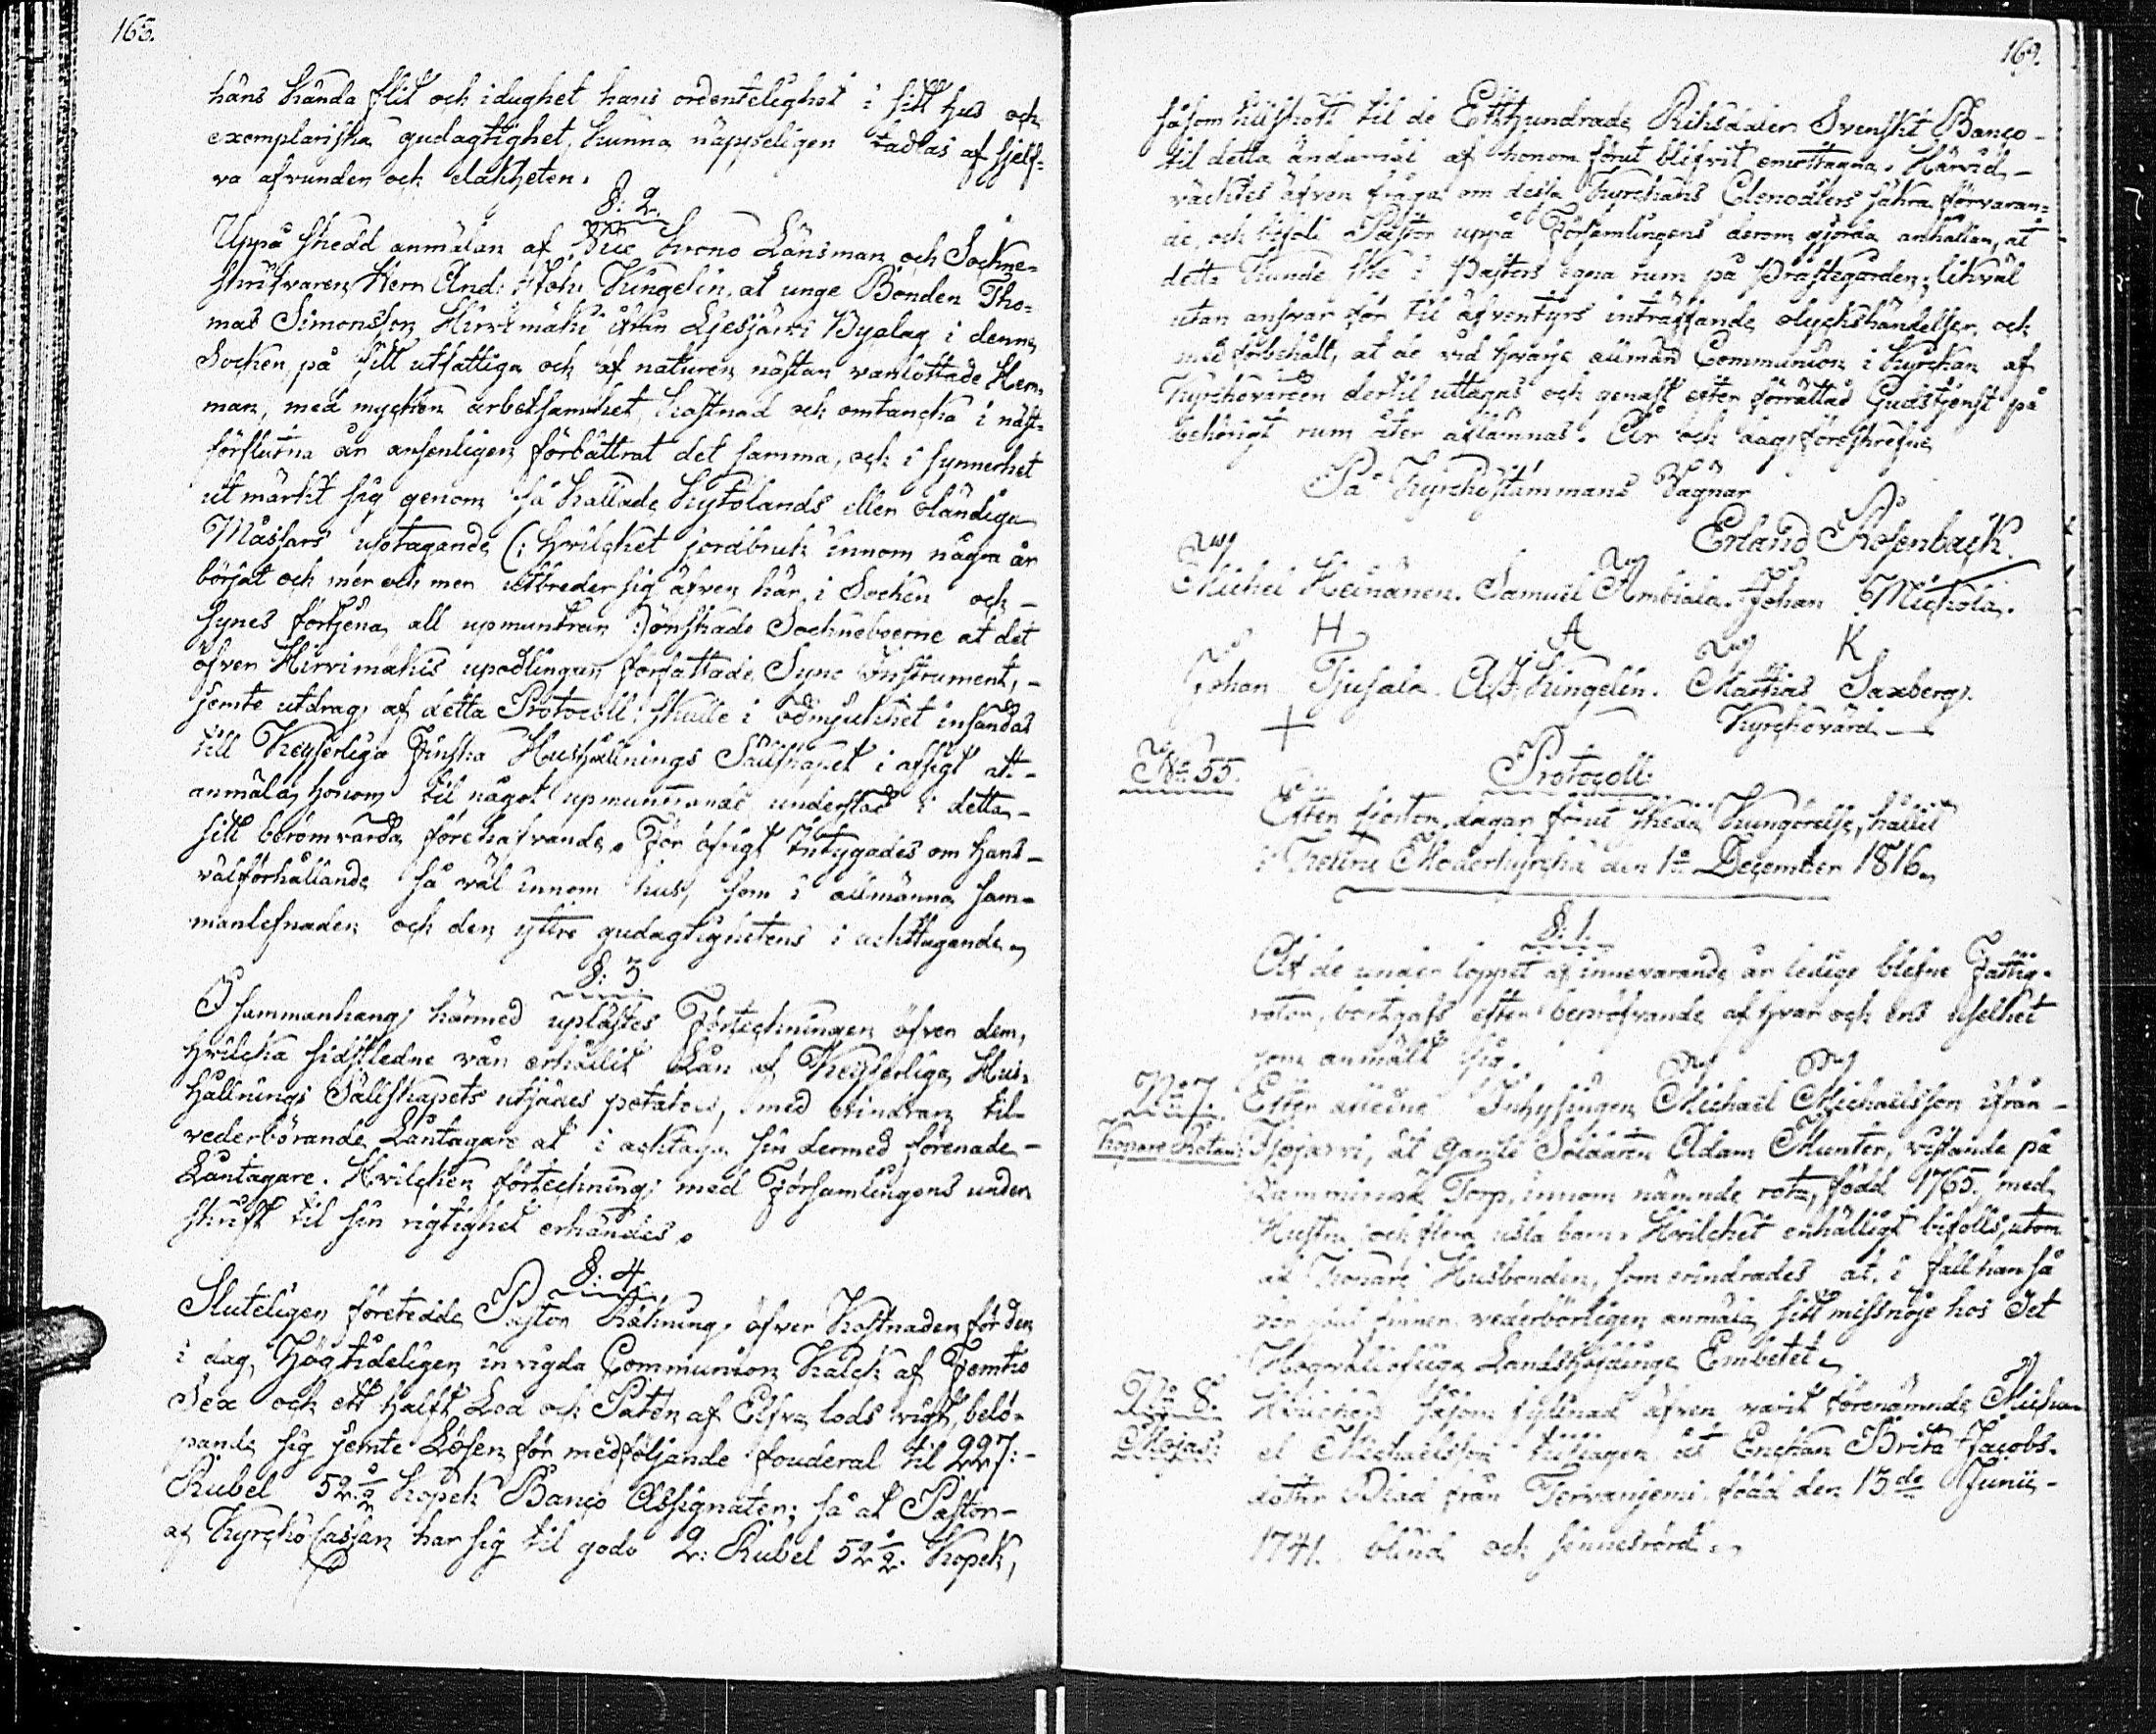 168.
hans kända flit och idughet hans ordentelighet i sitt hus och
exemplariska gudagtighet, kunna näppeligen tadlas af sjelf-
va afvunden och elakheten.
§: 2.
Uppå skedd anmälan af Vice Krono Länsman och Sockne-
skrifvaren Herr And: Joh: Kingelin, at unge Bonden Tho-
mas Simonsson Hirvimäki ifrån Ljesjärvi Byalag i denne
Socken, på sitt utfattiga och af naturen nästan vanlottade Hem-
man, med mycken arbetsamhet, kostnad och omtancka i näst-
förflutna år ansenligen förbättrat det samma, och i synnerhet
utmärkt sig genom så kallade kytölands eller oländiga
Måssars uptagande (: hvilcket jordbruk innom några år
börjat och mer och mer utbreder sig äfven här i Socken och
synes förtjena all upmuntran :) önskade Sockneboerne at det
öfver Hirvimäkis upodlingar författade Syne Instrument,
jemte utdrag af detta Protocoll: skulle i ödmjukhet insändas
till Kejserliga Finska Hushållnings Sällskapet i afsigt att
anmäla honom til något upmuntrande understöd i detta
sitt berömvärda förehafvande. För öfrigt intygades om hans
välförhållande så väl innom hus, som i allmänna sam-
manlefnaden och den yttre gudagtighetens i ackttagande.
§: 3
I sammanhang härmed uplästes Förteckningen öfver dem,
hvilcka sidstledne vår erhållit Lån af Kejserliga Hus-
hållnings Sällskapets utsädes potatoes, med erindran til
vederbörande Låntagare at i acktaga sin dermed förenade
Låntagare. Hvilcken förteckning med Församlingens under
skrift til sin rigtighet erkändes.
§: 4
Sluteligen företedde Pastor Räkning öfver Kostnaden för den
i dag, Högtideligen invigda Communion Kalck af Femtio
Sex och ett halft Lod och Paten af Elfva lods vigt, belö-
pande sig jemte Lösen för medföljande fouderal til 227:-
Rubel 52½ kopek Banco Assignater; så at Pastor
af Kyrcko Cassan har sig til godo 2: Rubel 52½. Kopek,
169.
såsom tillskott til de Etthundrade Riksdaler Svenskt Banco
til detta ändamål af honom förut blifvit emottagna. Härvid
väcktes äfven fråga om dessa Kyrckans Clenodiers säkra förvaran-
de, och biföll Pastor uppå Församlingens derom gjorda anhållan, at
detta kunde ske i Pastors egna rum på Prästegården; likväl
utan ansvar för til äfventyrs inträffande olyckshändelser, och
med förbehåll, at de vid hvarje allmänd Communion i kyrckan af
Kyrckovärden dertil uttagas och genast efter förrättad Gudstjenst på
behörigt rum åter aflämnas. År och dag föreskrefne
På Kyrckostämmans Vägnar
Erland Rosenback.
Michel Heinänen. Samuel Ambiala. Johan Mickola.
H A K
Johan Tjusala. A J. Kingelin. Matthias Saxberg.
+ Kyrckovärd
No 55.
Protocoll
Efter fjorton dagar förut skedd Kungörelse, hållit
i Moderkyrcka den 1a December 1816.
§: 1.
Af de under loppet af innevarande år ledige blefne Fattig-
rotor, bortgafs efter bepröfvande af hvar och ens uselhet
som anmält sig.
No 7. Efter aflidne Inhysingen Michael Michaelsson ifrån
, åt gamle Soldaten Adam Munter, vistande på
Torp, innom nämnde rota, född 1765. med
Hustru och flera usla barn. Hvilcket enhälligt bifölls, utom
af Husbonden, som erindrades at, i fall han så
för godt finner vederbörligen anmäla sitt missnöje hos Det
Högvällofliga Landshöfdinge Embetet.
No 8. Hvilcken såsom fyllnad äfven varit förenämnde Micha-
el Michaelsson tillslagen åt Enckan Brita Jacobs-
dotter född den 13de Junii
1741. blind och sinnesrörd.